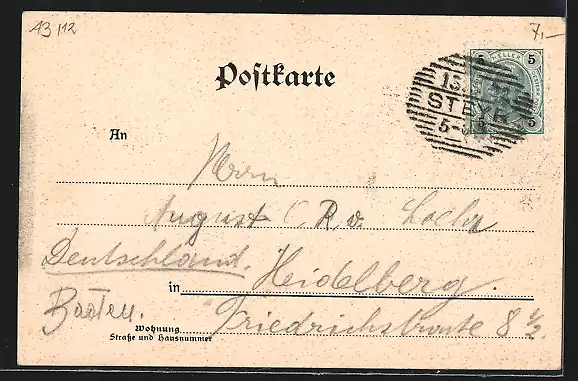 43/12
7,—
Postkarte
5 5
13
STEYR
5-6
5
An
Herrn
August C. R. v. Lochr
Deutschland.
in Heidelberg.
Baden.
Wohnung
Straße und Hausnummer
Friedrichstraße 8 1/2